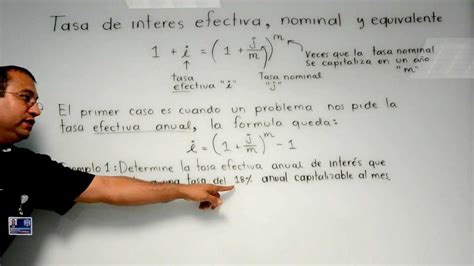 Tasa de interes efectiva, nominal y equivalente
1 + i = (1 + j/m)^m
Veces que la tasa nominal
se capitaliza en un año
"m"
tasa efectiva "i"
Tasa nominal "j"
El primer caso es cuando un problema nos pide la
tasa efectiva anual, la formula queda:
i = (1 + j/m)^m - 1
Ejemplo 1: Determine la tasa efectiva anual de interés que
a una tasa del 18% anual capitalizable al mes.